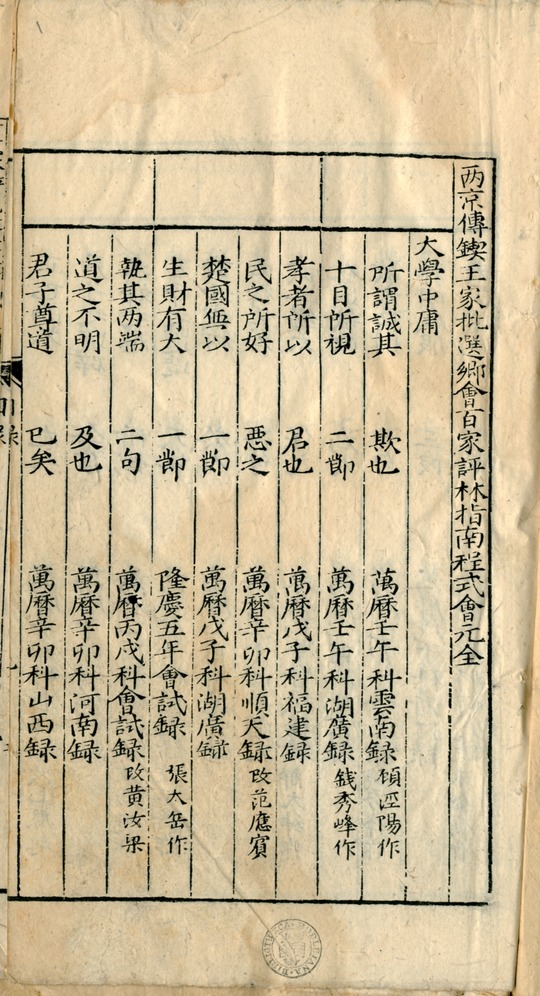 两京傳鍥王家批選鄉會百家評林指南程式會元全
大學中庸
所謂誠其 欺也 萬曆壬午科雲南録 顧涇陽作
十目所視 二節 萬曆壬午科湖廣録 錢秀峰作
孝者所以 君也 萬曆戊子科福建録
民之所好 惡之 萬曆辛卯科順天録 改范應賓
楚國無以 一節 萬曆戊子科湖廣録
生財有大 一節 隆慶五年會試録 張太岳作
執其两端 二句 萬曆丙戌科會試録 改黄汝梁
道之不明 及也 萬曆辛卯科河南録
君子尊道 已矣 萬曆辛卯科山西録
目録